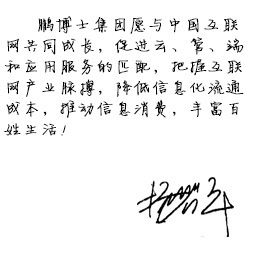 鹏博士集团愿与中国互联
网共同成长，促进云、管、端
和应用服务的匹配，把握互联
网产业脉搏，降低信息化流通
成本，推动信息消费，丰富百
姓生活！